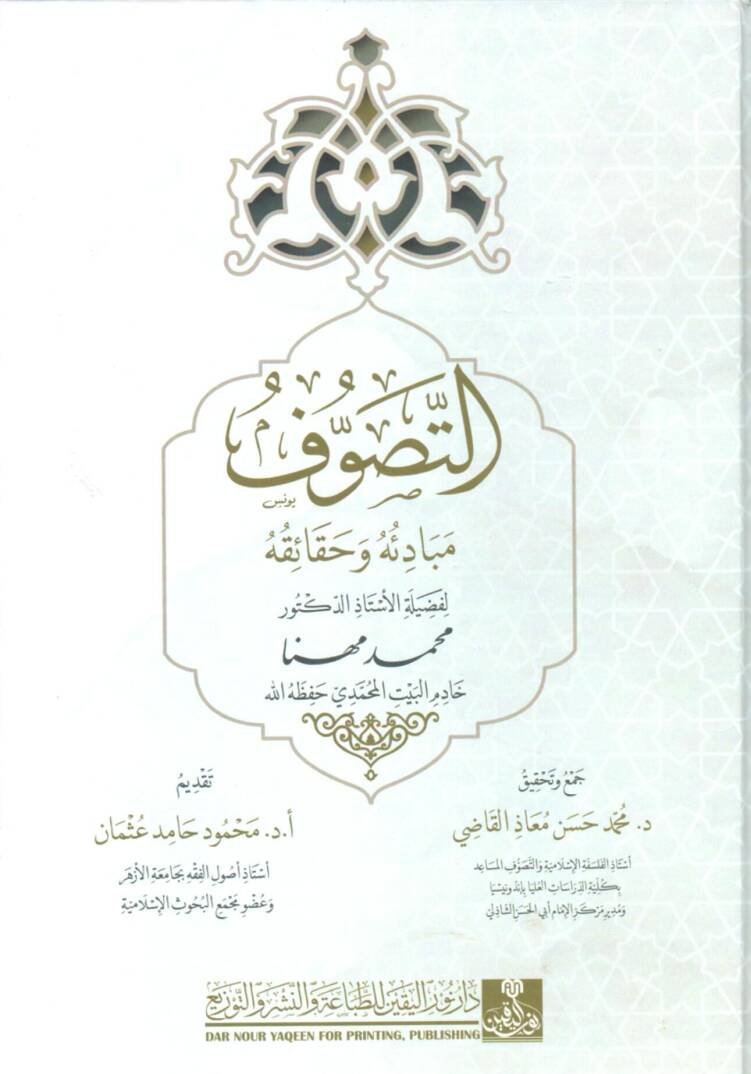 التَّصَوُّفُ
يونس
مَبَادِئُهُ وَحَقَائِقُهُ
لِفَضِيلَةِ الأُسْتَاذِ الدّكْتُور
محمد مهنا
خَادِمِ البَيْتِ المُحَمَّدِيّ حَفِظَهُ الله
جَمْعُ وَتَحْقِيقُ
د. مُحَمَّد حَسَن مُعَاذ القَاضِي
أُسْتَاذُ الفَلْسَفَةِ الإِسْلَامِيَّةِ وَالتَّصَوُّفِ المُسَاعِد
بِكُلِّيَةِ الدِّرَاسَاتِ العُلْيَا بِإِندُونِيسْيَا
وَمُدِيرِ مَرْكَزِ الإِمَامِ أَبِي الحَسَنِ الشَّاذِلِيّ
تَقْدِيمُ
أ.د. مَحْمُود حَامِد عُثْمَان
أُسْتَاذُ أُصُولِ الفِقْهِ بِجَامِعَةِ الأَزْهَر
وَعُضْوِ مَجْمَعِ البُحُوثِ الإِسْلَامِيَّة
دَارُ نُورِ اليَقِينِ لِلطِّبَاعَةِ وَالنَّشْرِ وَالتَّوْزِيعِ
DAR NOUR YAQEEN FOR PRINTING, PUBLISHING
نور اليقين